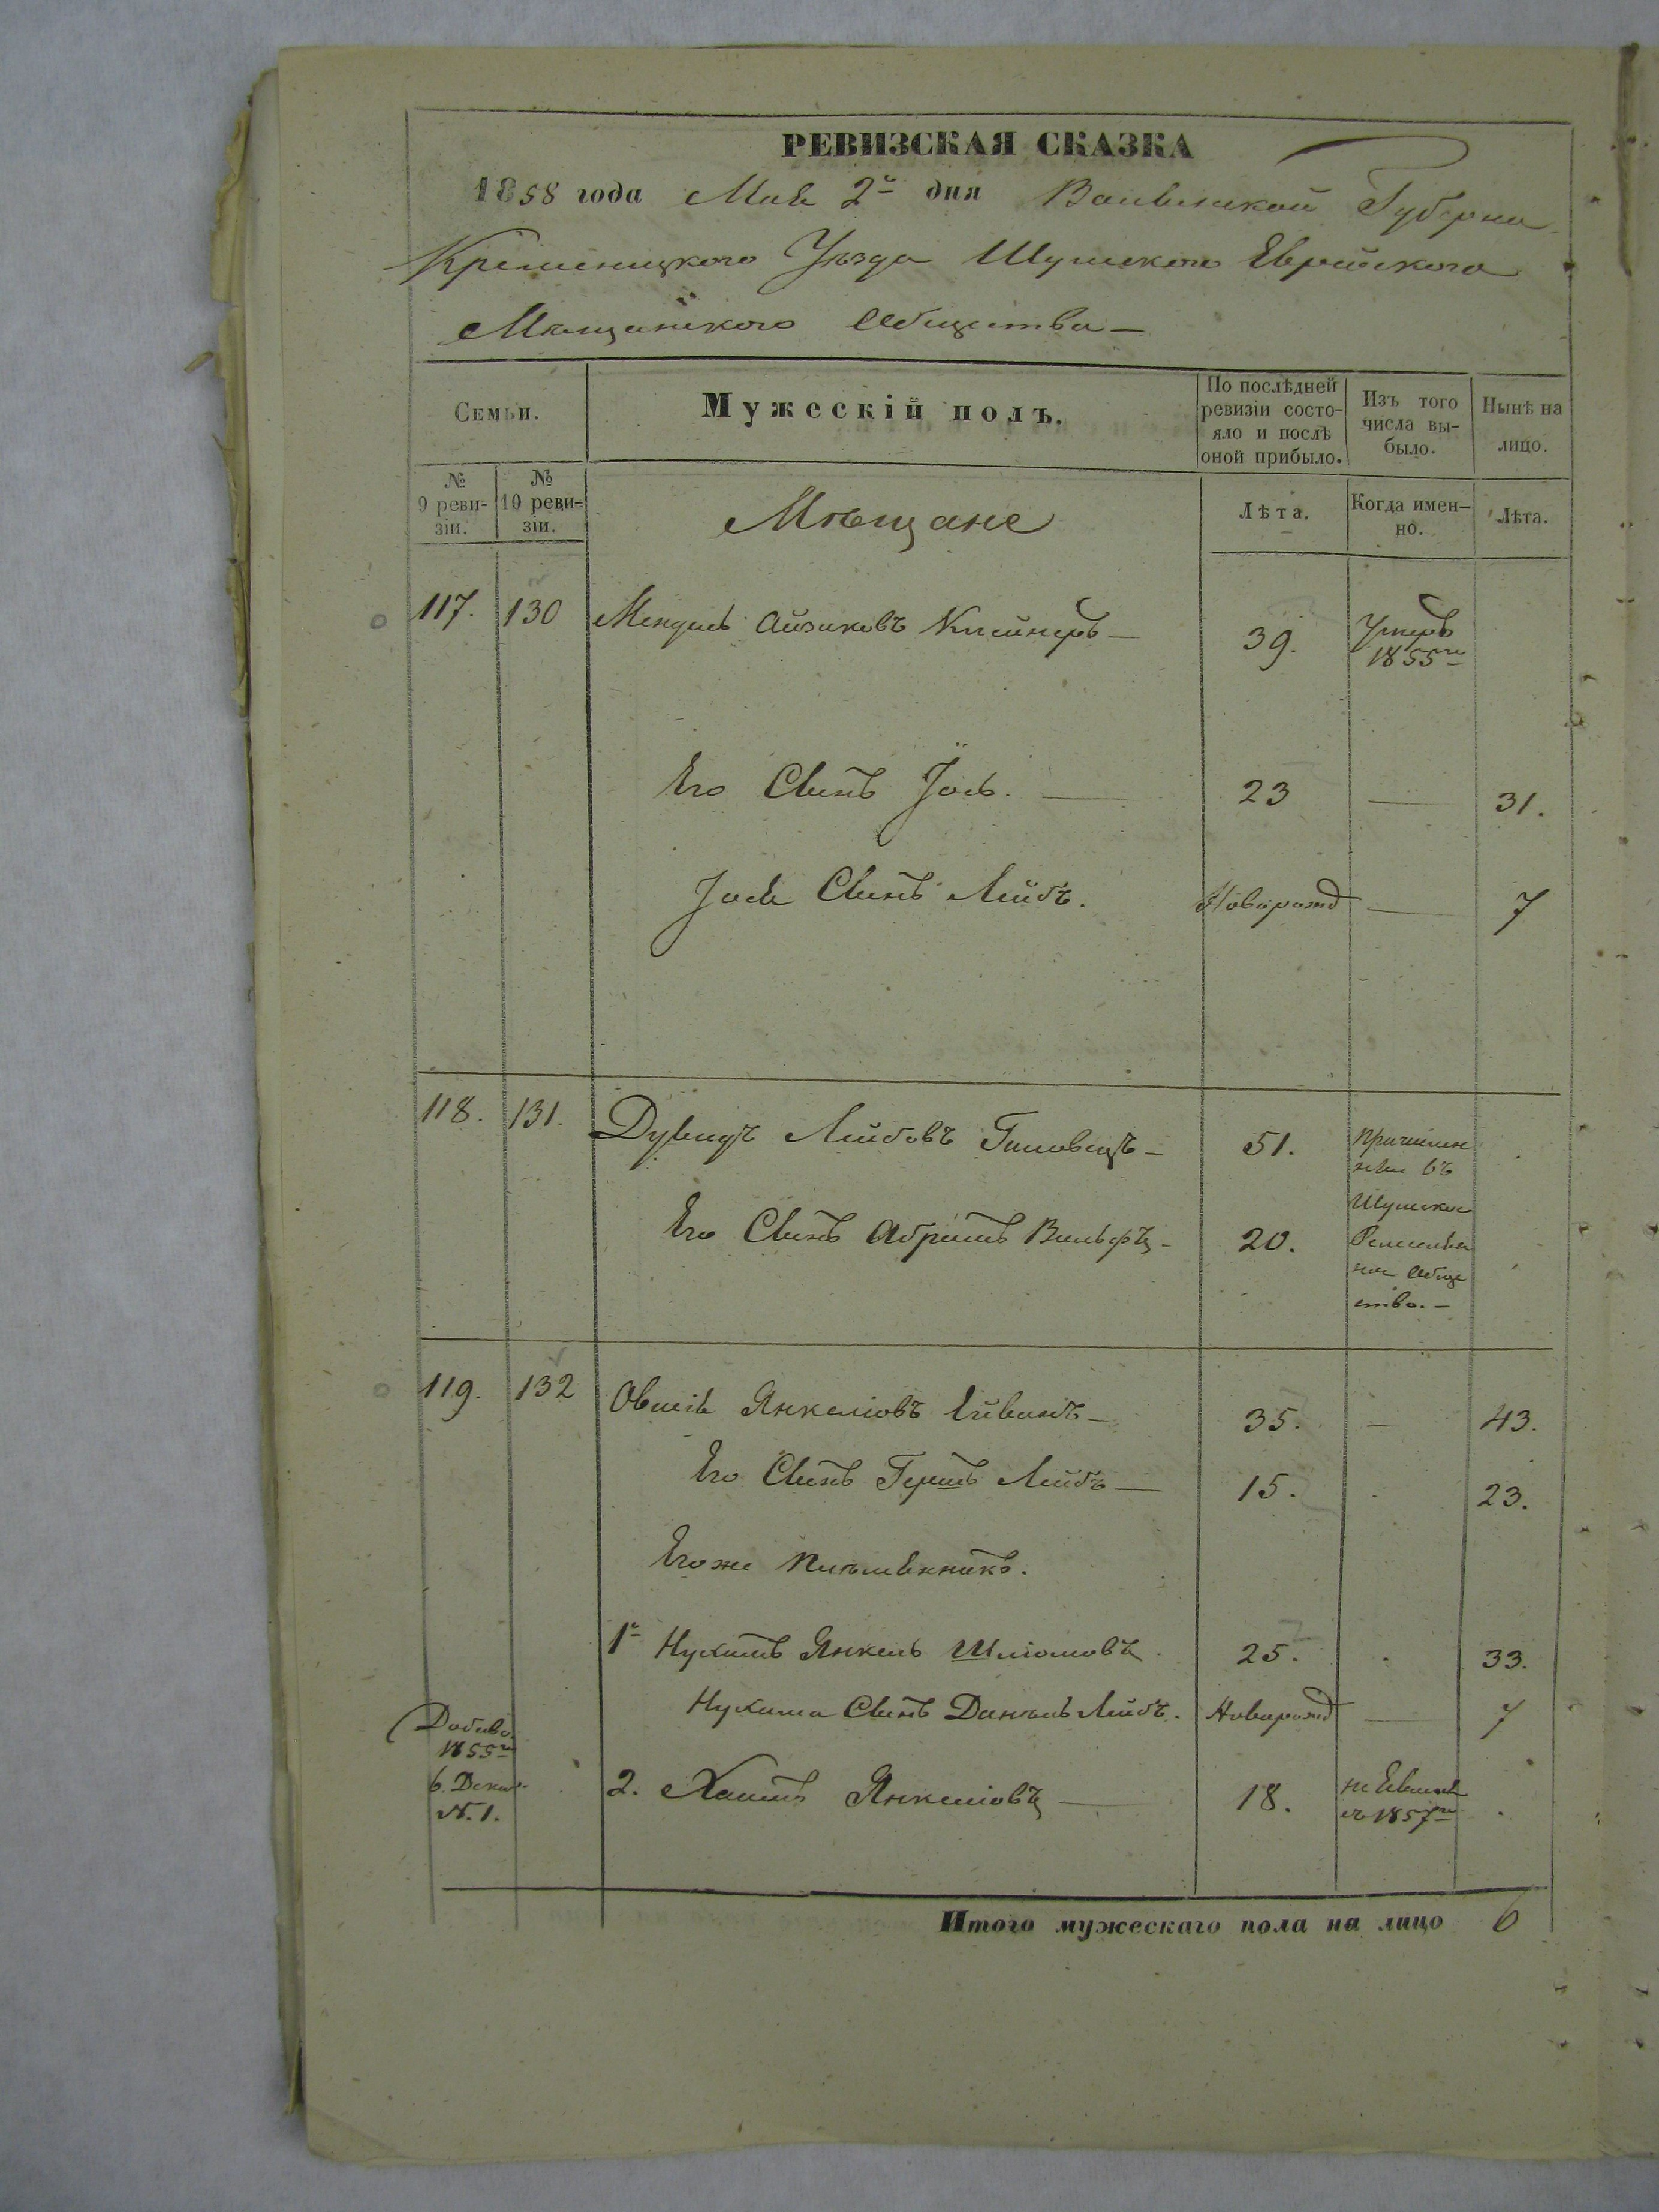 РЕВИЗСКАЯ СКАЗКА
1858 года Мая 2го дня Волынской Губерніи
Кременецкого Уѣзда Шумского Еврейского
Мѣщанского Общества —
Семьи.
Мужескій полъ.
По послѣдней ревизіи состо-
яло и послѣ
оной прибыло.
Изъ того
числа вы-
было.
Нынѣ на
лицо.
№
9 реви-
зіи.
№
10 реви-
зіи.
Мѣщане
Лѣта.
Когда имен-
но.
Лѣта.
117. 130 Мендель Айзиковъ Клейнеръ — 39. Умеръ
1855го
Его Сынъ Іось. — 23 — 31.
Іося Сынъ Лейбъ. Новорожд — 7
118. 131. Дувидъ Лейбовъ — 51. причислен
ны въ
Его Сынъ Абрамъ Вольфъ — 20. Шумское
Ремеслен
ное Обще
ство. —
119. 132 Овшія Янкеліовъ — 35. — 43.
Его Сынъ Гершъ Лейбъ — 15. . 23.
Егоже племянникъ.
1й Нухимъ Янкель Шліомовъ. 25. . 33.
Нухима Сынъ Даніель Лейбъ. Новорожд — 7
Добаво.
1855го
6. Декаб.
N. 1.
2. Хаимъ Янкеліовъ — 18. не Явился
съ 1857го .
Итого мужескаго пола на лицо 6